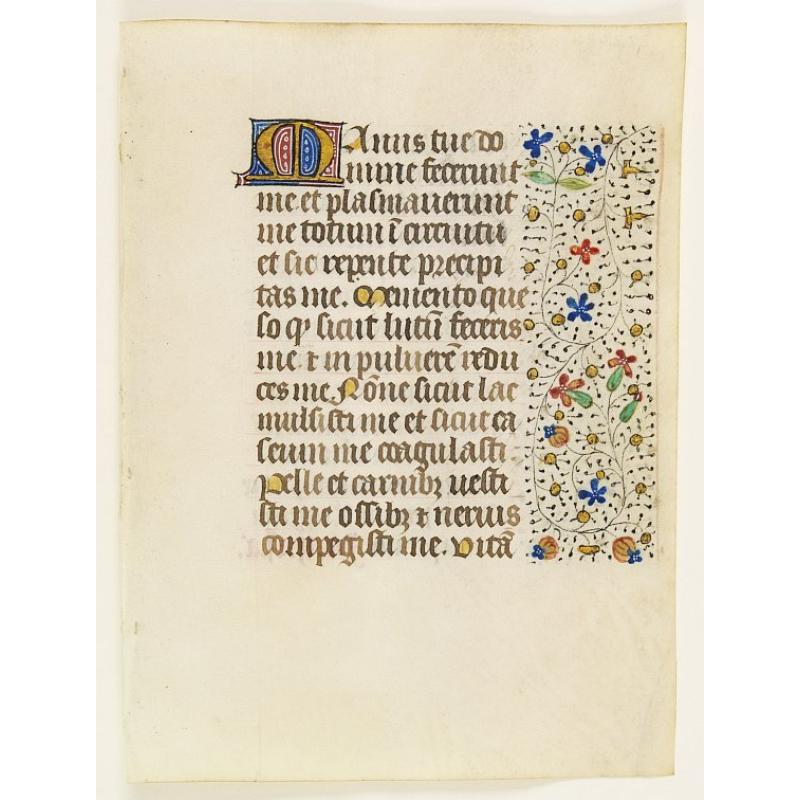 Manus tue do
mine fecerunt
me et plasmauerunt
me totum ī circuitu
et sic repente precipi
tas me. Memento que
so qꝫ sicut lutū feceris
me ⁊ in puluerē redu
ces me. Nōne sicut lac
mulsisti me et sicut ca
seum me coagulasti.
pelle et carnibꝫ uesti
sti me ossibꝫ ⁊ neruis
compegisti me. vitā